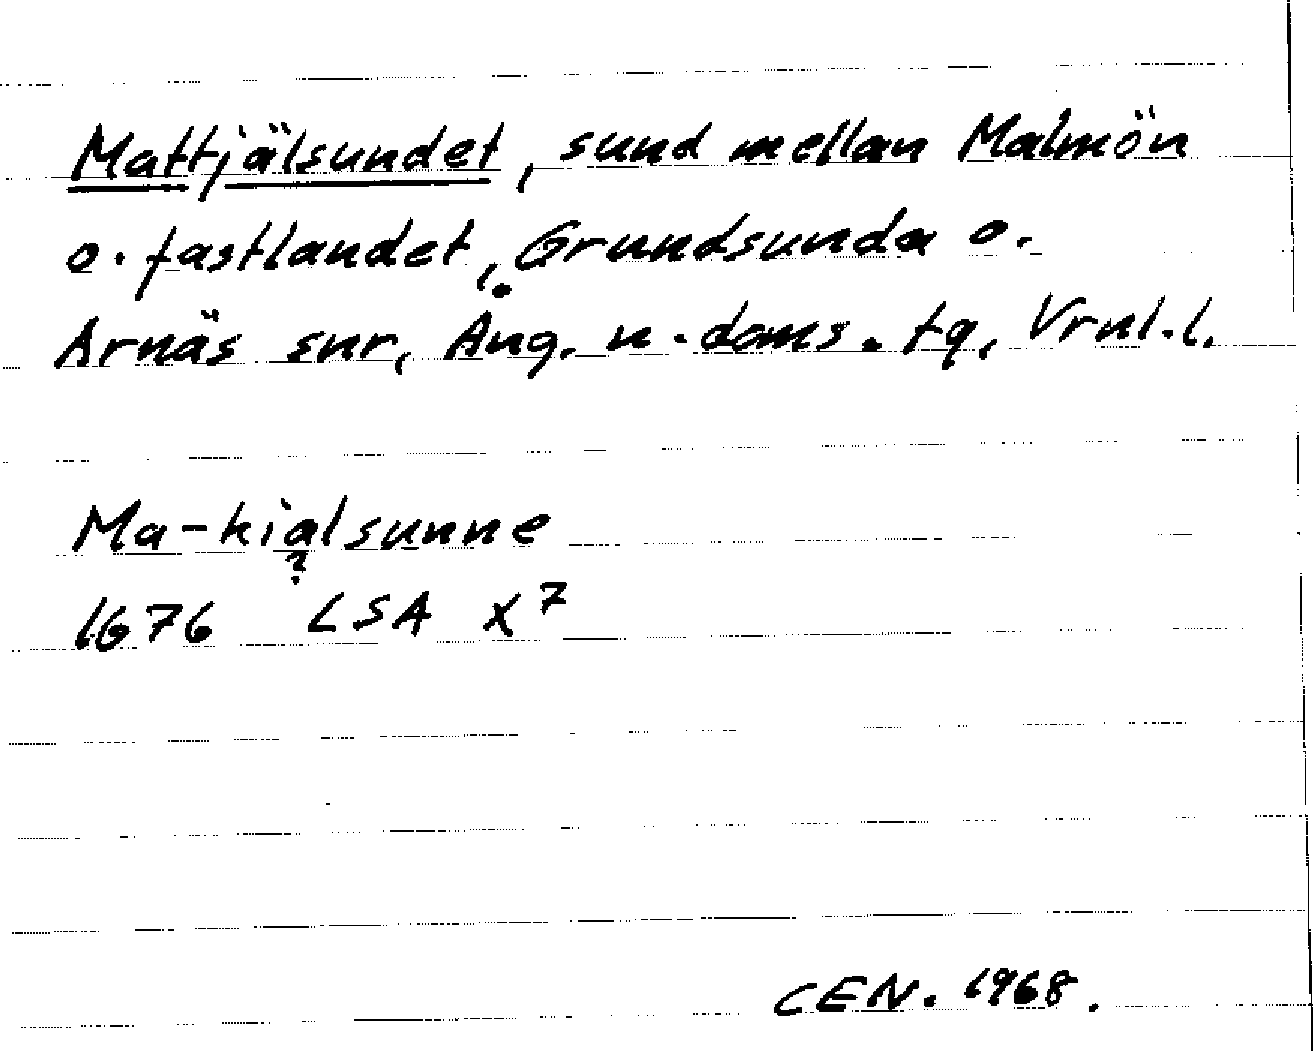 Mattjälsundet, sund mellan Malmön
o. fastlandet, Grundsunda o.
Arnäs snr, Ång. n. doms. tg, Vrnl.l.
Ma-kialsunne
?
1676 LSA X7
CEN. 1968.